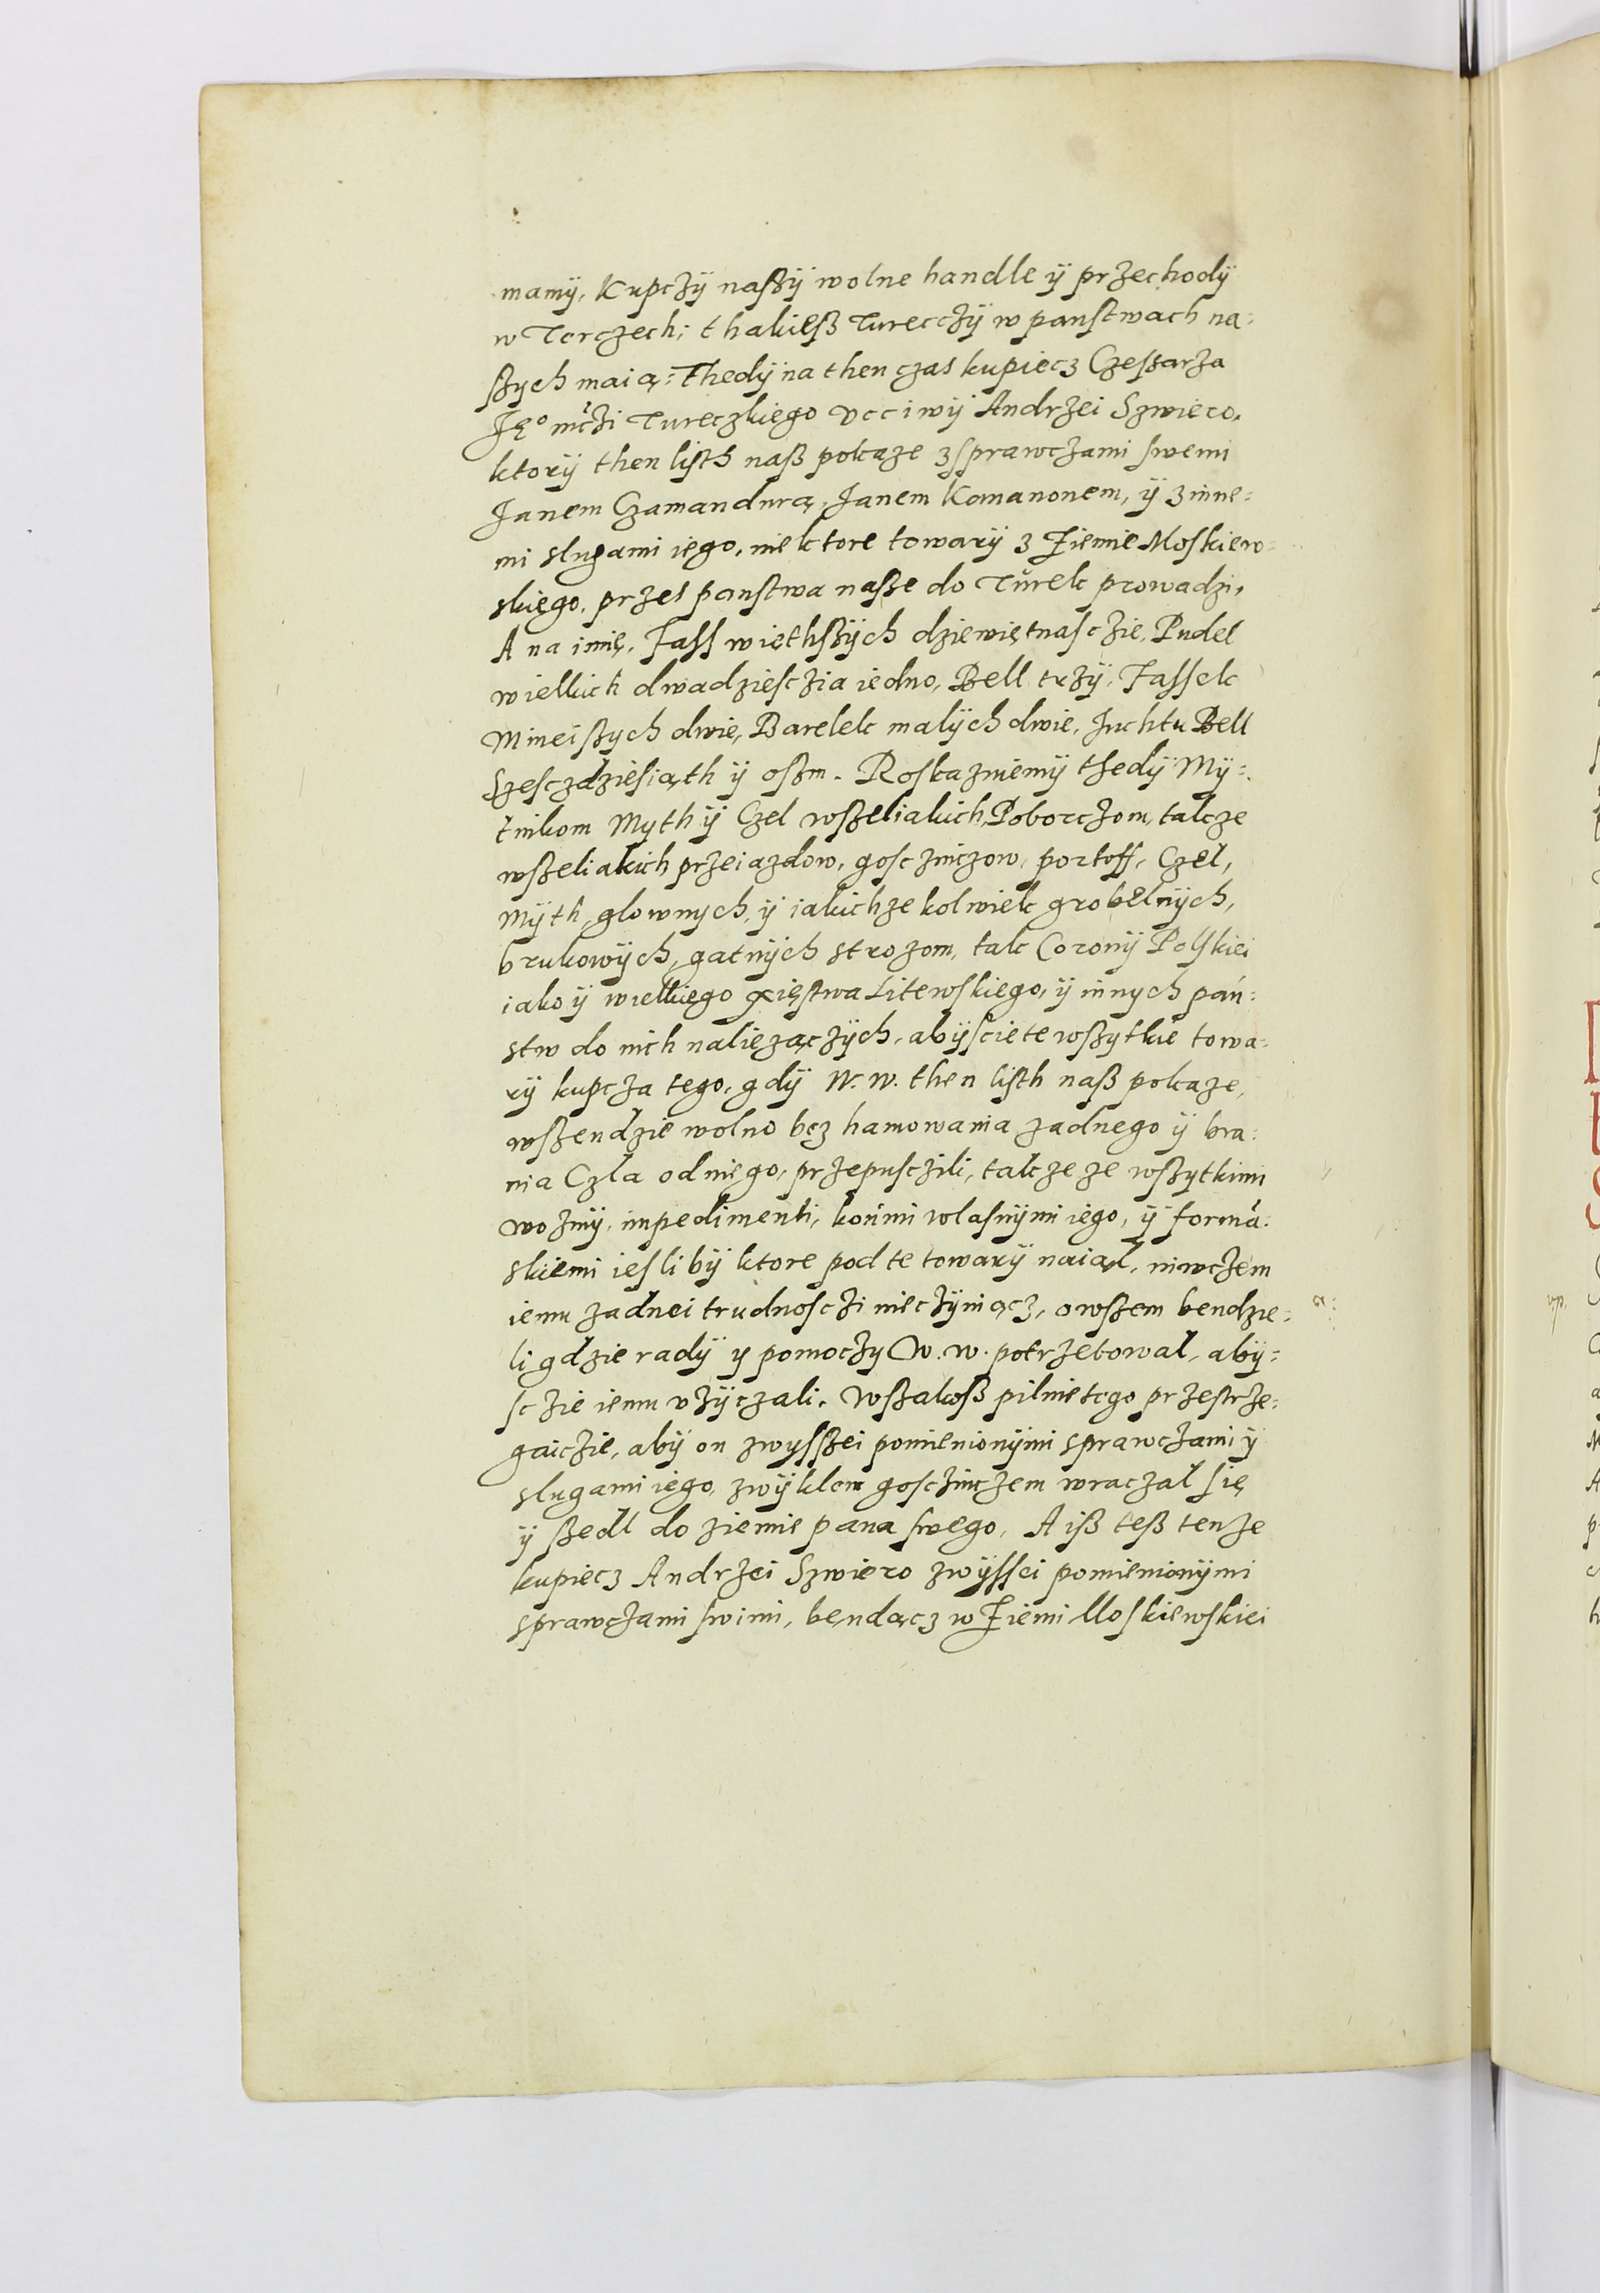 mamÿ, Kupczÿ naßÿ wolne handle ÿ przechodÿ
w Torczech; thakieß Tureczÿ w panstwach na-
ßych maią: Thedÿ na then czas kupiecz Czeßarza
Jeº mczi Tureczkiego vcciwÿ Andrzei Szwiero,
ktorÿ then listh naß pokaze z sprawczami swemi
Janem Czamandurą, Janem Komanonem, ÿ z inne-
mi slugami iego, niektore towarÿ z Ziemie Moskiew-
skiego, przes panstwa naße do Turek prowadzi,
A na imię, Fass więthßÿch dziewiętnasczie, Pudel
wielkich dwadziesczia iedno, Bell trzÿ, Fassek
Mnieißych dwie, Barelek malÿch dwie, Juchtu Bell
Szesczdziesiąth ÿ oßm. Roskazuiemÿ thedÿ Mÿ-
tnikom Myth ÿ Czel wßeliakich, Poborczom, takze
wßeliakich przeiazdow, gosczinczow, portoff, Czel,
Mÿth, glownych, ÿ iakichze kolwiek grobelnÿch,
brukowÿch, gatnÿch strozom, tak Coronÿ Polskiei
iako ÿ wielkiego xięstwa Litewskiego, ÿ innych pań-
stw do nich naliezączÿch, abÿscie te wßytkie towa-
rÿ kupcza tego, gdÿ W. w. then listh naß pokaze,
wßendzie wolno bez hamowania zadnego ÿ bra-
nia Czla od niego, przepusczili, takze ze wßytkimi
woznÿ, impedimenti, końmi wlasnÿmi iego, ÿ formá-
skiemi iesli bÿ ktore pod te towarÿ naiąl, niwczem
iemu zadnei trudnosczi nieczÿniącz, owßem bendzie-
li gdzie radÿ y pomoczy W. w. potrzebowal, abÿ-
sczie iemu vżÿczali. Wßakoß pilnie tego przestrze-
gaiczie, abÿ on zwyßßei pomienionÿmi sprawczami ÿ
slugami iego, zwÿklem gosczinczem wraczal się
ÿ ßedl do ziemie pana swego. A iß teß tenze
kupiecz Andrzei Szwiero zwÿssei pomienionÿmi
sprawczami swimi, bendącz w Ziemi Moskiewskiei